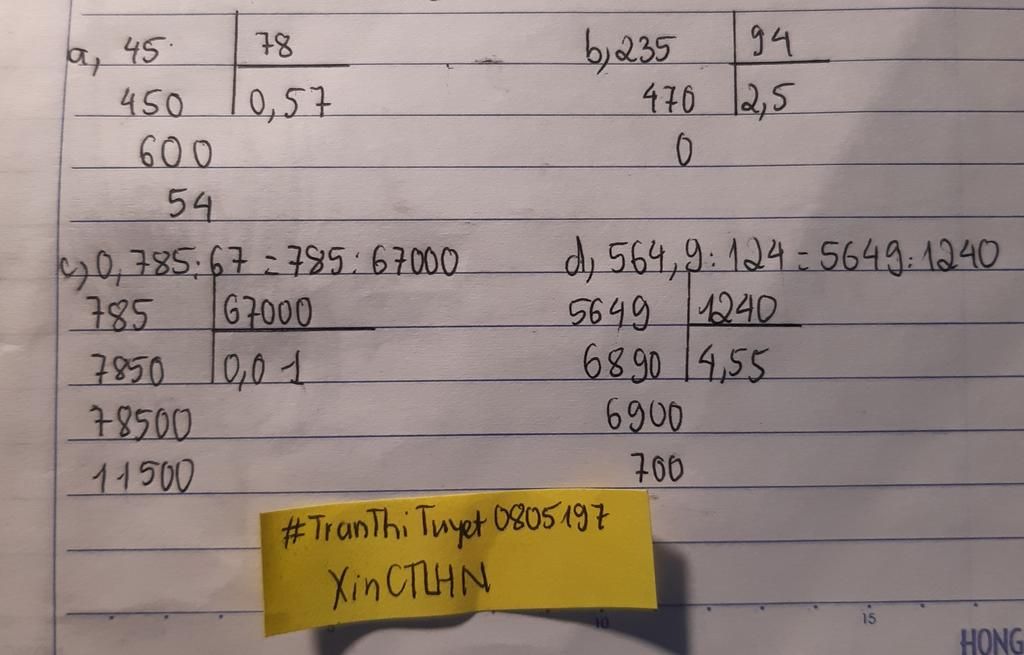 a, 45 78
450 0,57
600
54
b, 235 94
470 2,5
0
c, 0,785 : 67 = 785 : 67000
785 67000
7850 0,01
78500
11500
d, 564,9 : 124 = 5649 : 1240
5649 1240
6890 4,55
6900
700
#TranThiTuyet0805197
XinCTLHN
10 15
HONG